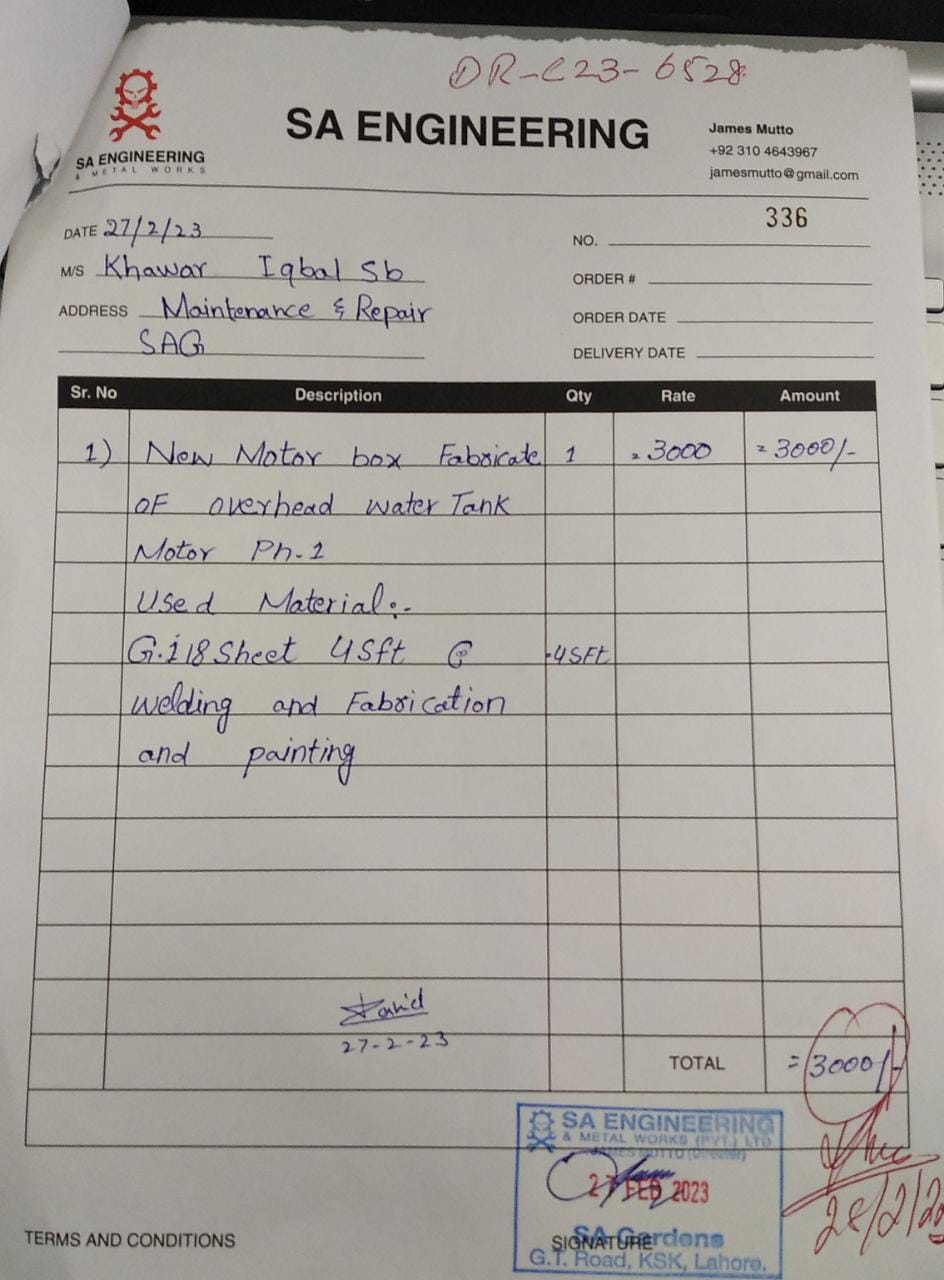 DR-C23-6528
SA ENGINEERING
& METAL WORKS
SA ENGINEERING
James Mutto
+92 310 4643967
jamesmutto@gmail.com
DATE 27/2/23
336
NO.
M/S Khawar Iqbal Sb
ORDER #
ADDRESS Maintenance & Repair
SAG
ORDER DATE
DELIVERY DATE
Sr. No Description Qty Rate Amount
1) New Motor box Fabricate 1 = 3000 = 3000/-
OF overhead water Tank
Motor Ph-1
Used Material:-
G.i 18 Sheet 4Sft @ 4SFT
welding and Fabrication
and painting
27-2-23
TOTAL = 3000/-
SA ENGINEERING
& METAL WORKS (PVT.) LTD
JAMES MUTTO (Director)
27 FEB 2023
SA Gardens
G.T. Road, KSK, Lahore.
28/2/2
TERMS AND CONDITIONS
SIGNATURE